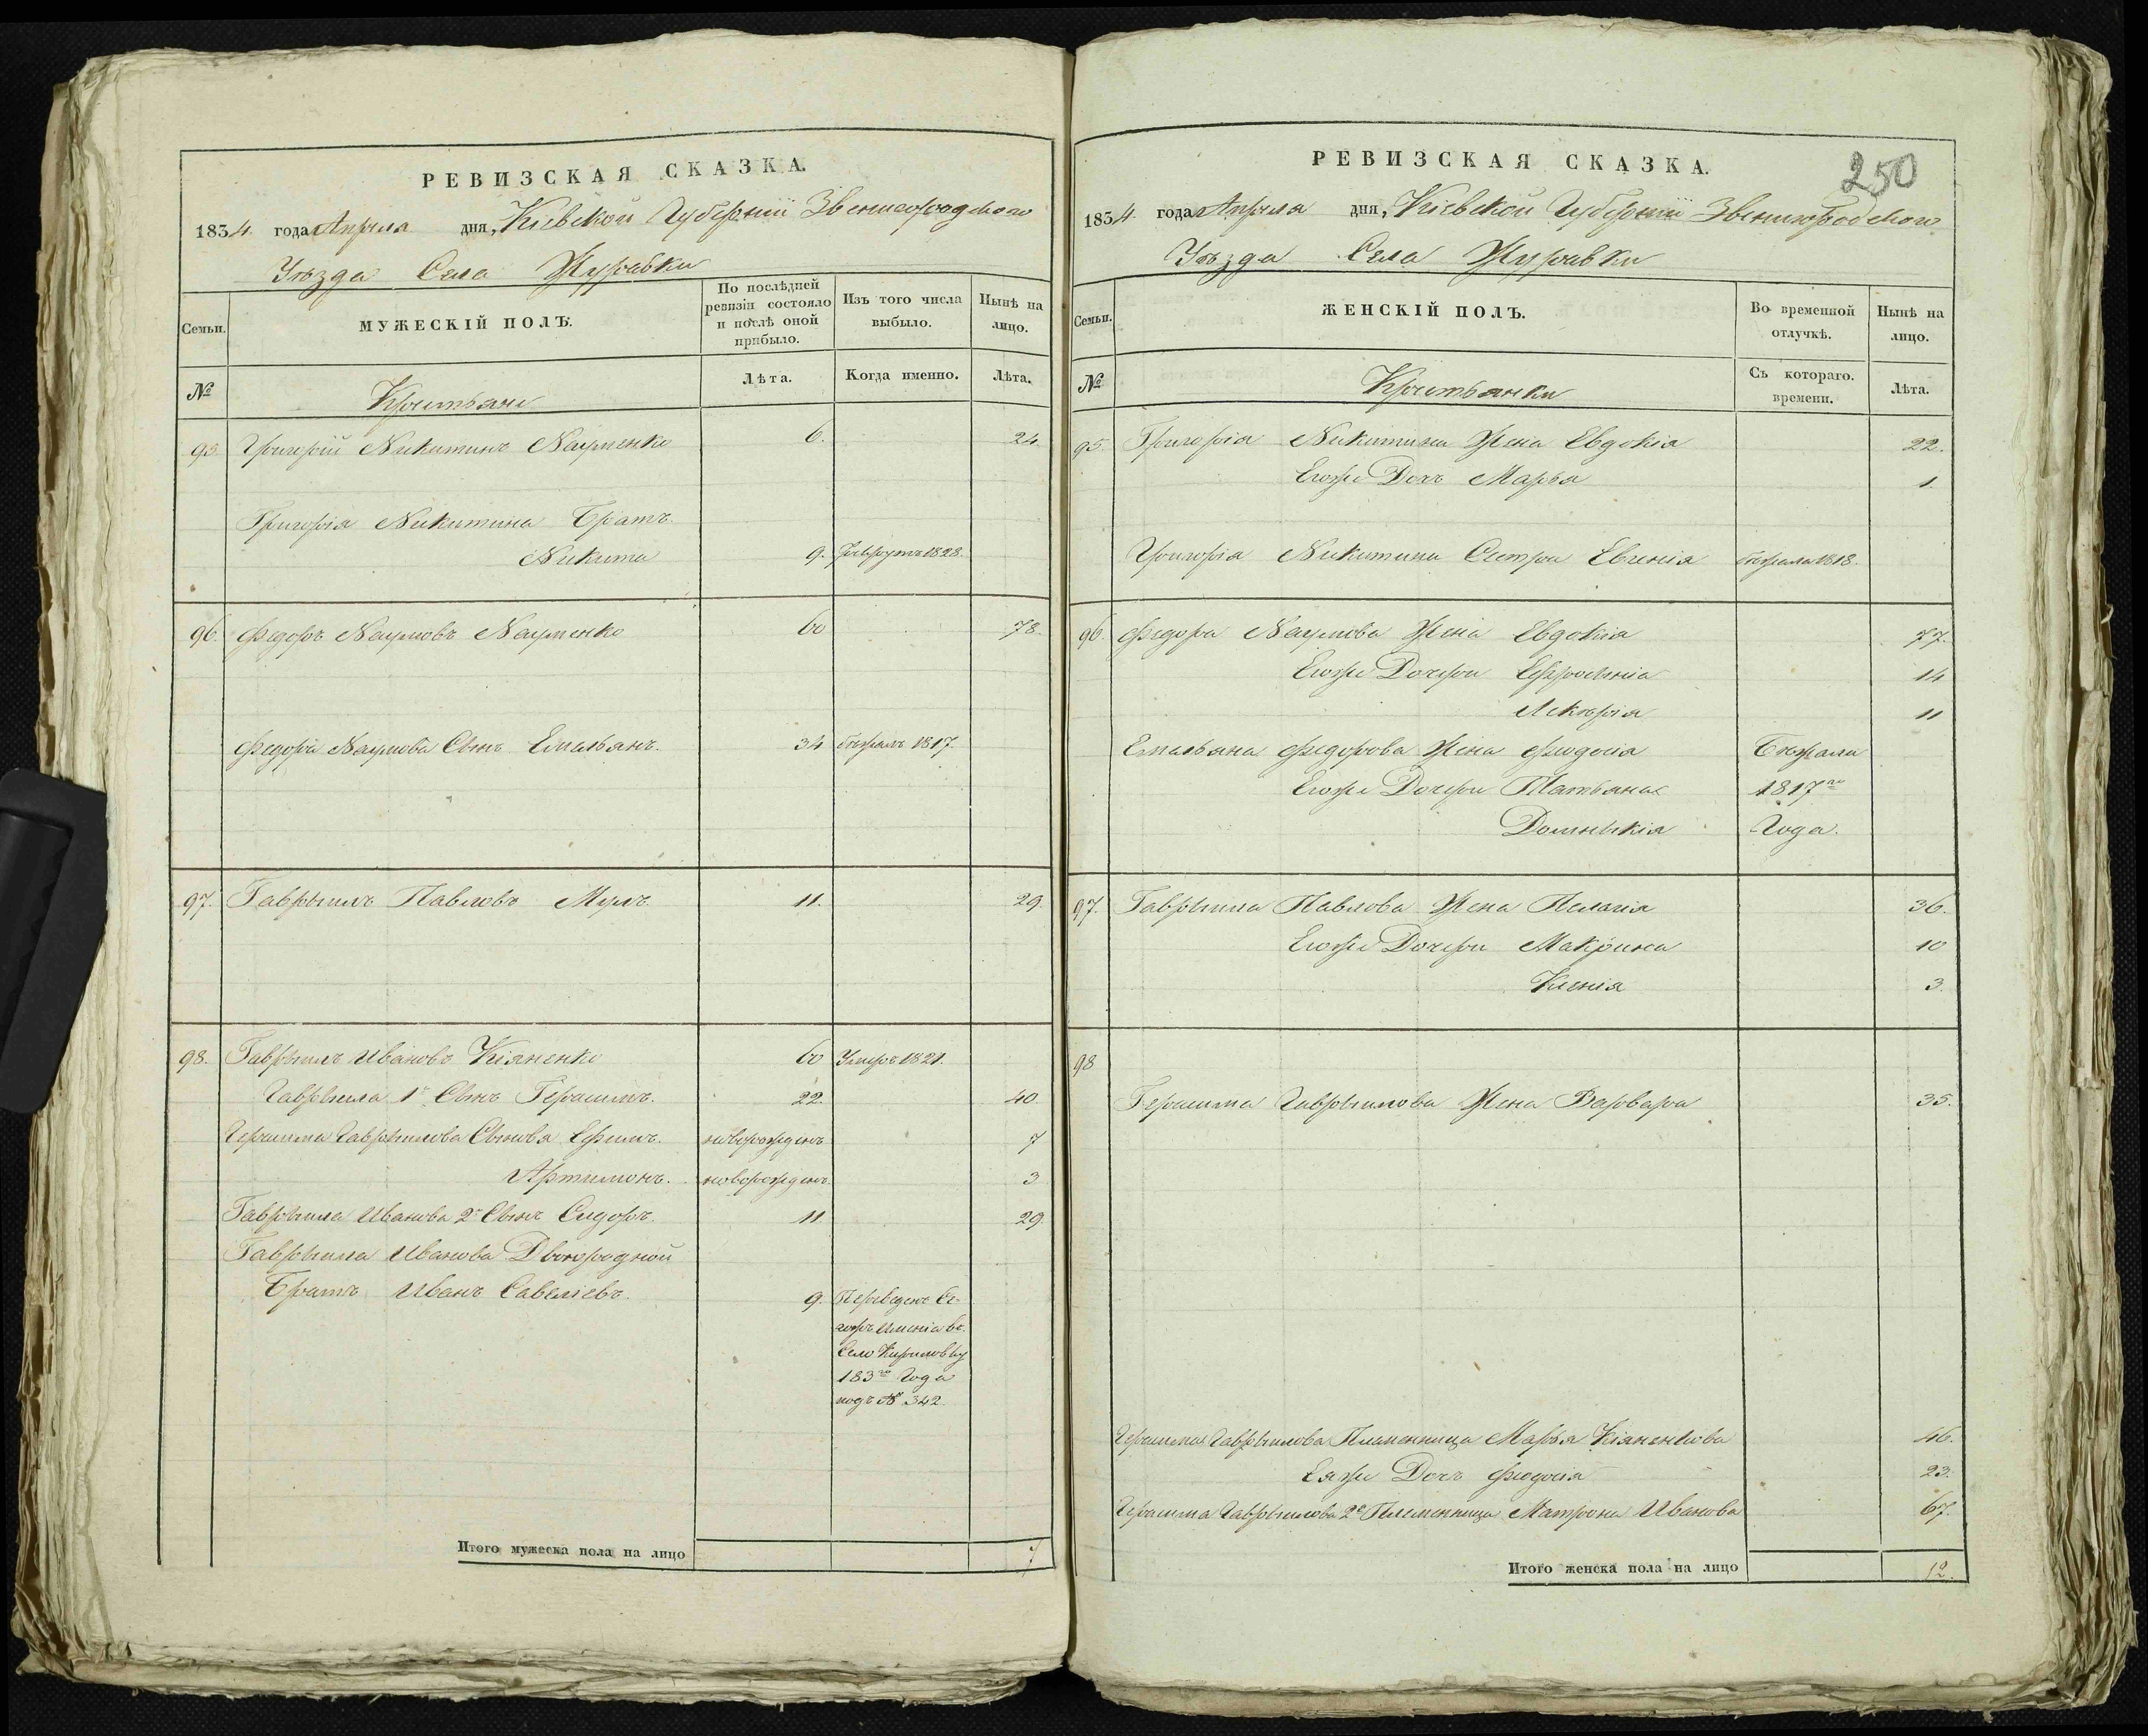 РЕВИЗСКАЯ СКАЗКА.
1834 года Апреля дня, Кіевской Губерніи Звенигородского
Уѣзда Села Журавки
Семьи.
МУЖЕСКІЙ ПОЛЪ.
По послѣдней ревизіи состояло и послѣ оной прибыло.
Изъ того числа выбыло.
Нынѣ на лицо.
№
Крестьяне
Лѣта.
Когда именно.
Лѣта.
95. Григорій Никитинъ Науменко 6. 24.
Григорія Никитина Братъ
Никита 9. Рекрутъ 1828.
96. Федоръ Наумовъ Науменко 60 78.
Федора Наумова Сынъ Емельянъ. 34 бѣжалъ 1817.
97. Гаврыилъ Павловъ 11. 29.
98. Гаврыилъ Ивановъ Кіяненко 60 Умеръ 1821.
Гаврыила 1й Сынъ Герасимъ. 22. 40.
Герасима Гаврыилова Сыновя Ефимъ. новорожденъ 7
Артимонъ. новорожденъ. 3
Гаврыила Иванова 2й Сынъ Сидоръ. 11 29.
Гаврыила Иванова Двоюродной
Братъ Иванъ Савеліевъ. 9. Переведенъ
имѣнія въ
Село Кириловку
183 Года
подъ № 342.
Итого мужеска пола на лицо 7
РЕВИЗСКАЯ СКАЗКА.
250
1834 года Апреля дня, Кіевской Губерніи Звенигородского
Уѣзда Села Журавки
Семьи.
ЖЕНСКІЙ ПОЛЪ.
Во временной отлучкѣ.
Нынѣ на лицо.
№
Крестьянки
Съ котораго времени.
Лѣта.
95. Григорія Никитина Жена Евдокія 22.
Егоже Дочь Марья 1.
Григорія Никитина Сестра Евгенія бѣжала 1818.
96. Федора Наумова Жена Евдокія 77.
Егоже Дочери Ефросинія 14
Лекерія 11
Емельяна Федорова Жена Феодосія Бѣжали
Егоже Дочери Татьяна 1817го
Домникія Года.
97. Гаврыила Павлова Жена Пелагія 36.
Егоже Дочери Макрина 10
Ксенія 3.
98
Герасима Гаврыилова Жена Варвара 35.
Герасима Гаврыилова Племенница Марья Кіяненкова 46.
Еяже Дочь Феодосія 23.
Герасима Гаврыилова 2я Племенница Матрона Иванова 67.
Итого женска пола на лицо 12.